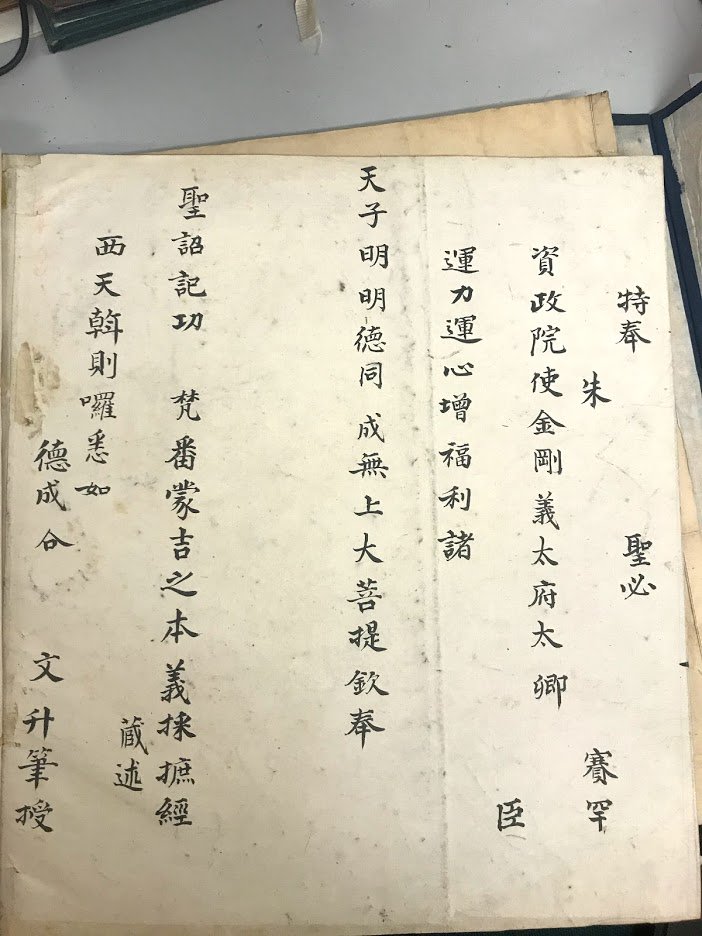 特奉　聖必
朱　賽罕
資政院使金剛義太府太卿　臣
運力運心增福利諸
天子明明德同成無上大菩提欽奉
聖詔記功　梵番蒙吉之本義採摭經
藏述
西天斡則囉悉如
德成合　文升筆授